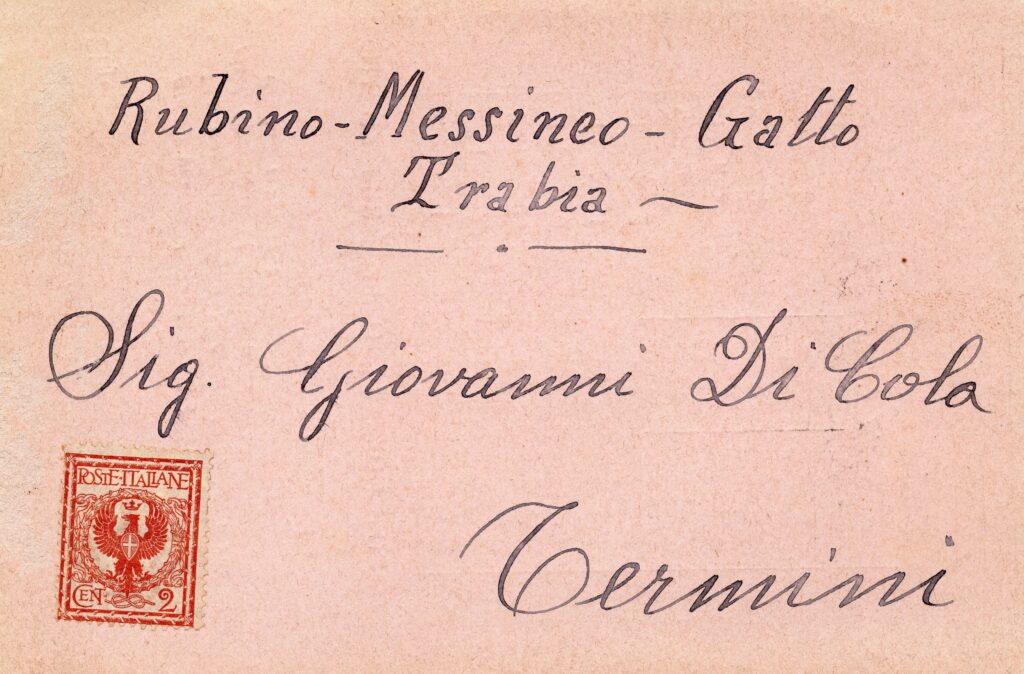 Rubino-Messineo-Gatto
Trabia
Sig. Giovanni Di Cola
Termini
POSTE·ITALIANE
CEN. 2